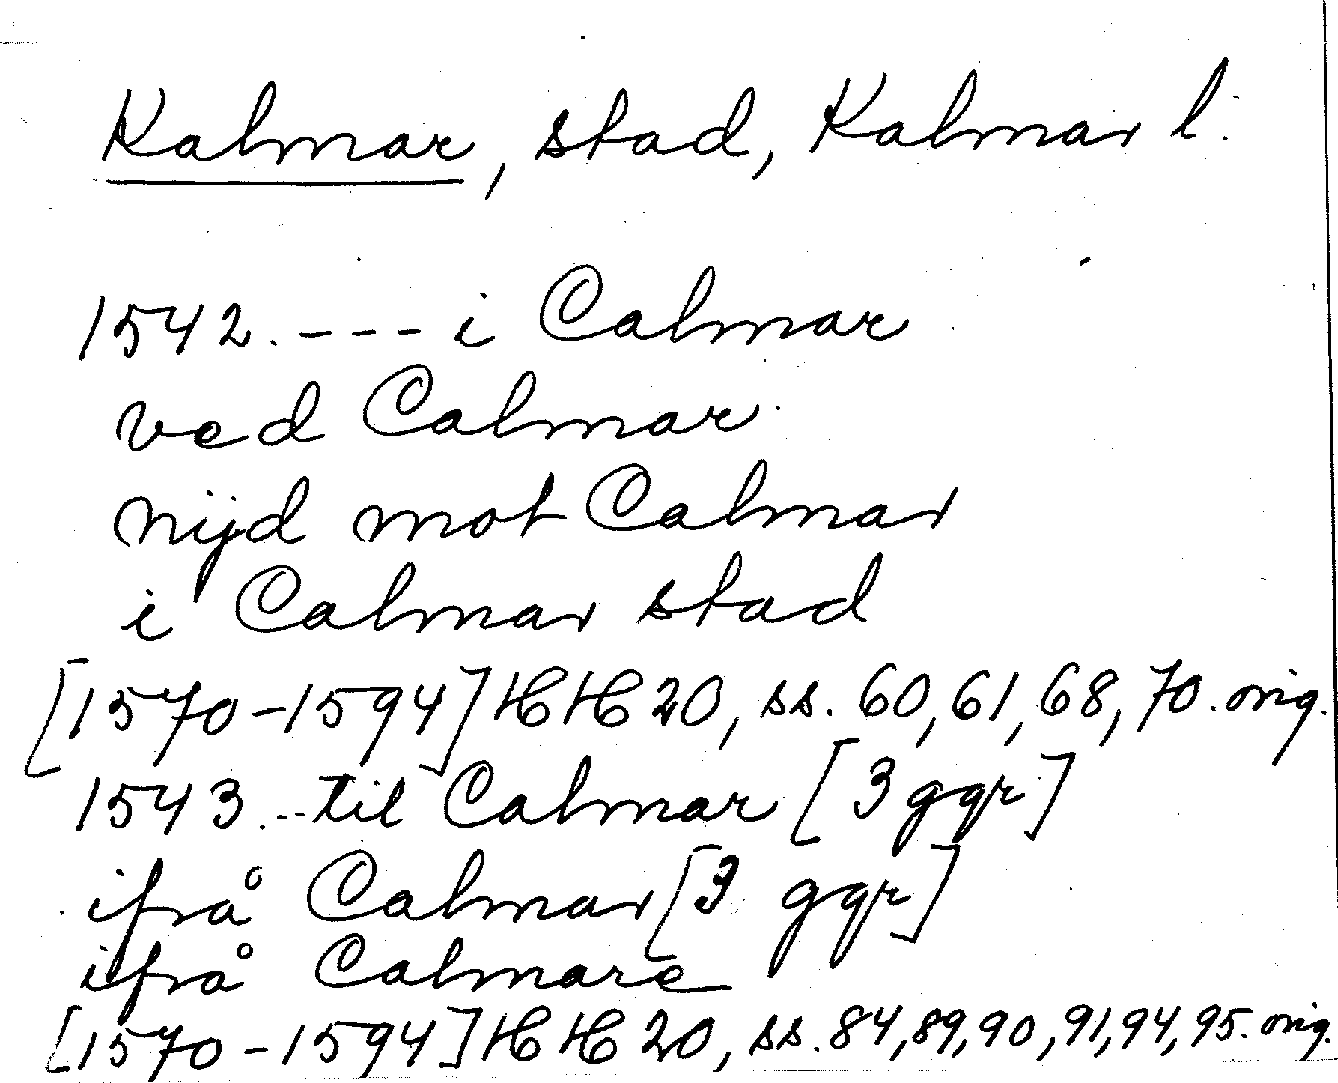 Kalmar, stad, Kalmar l.
1542. --- i Calmar
ved Calmar
nijd mot Calmar
i Calmar stad
[1570-1594] HH 20, ss. 60, 61, 68, 70. orig.
1543. -- til Calmar [3 ggr]
ifrå Calmar [3 ggr]
ifrå Calmare
[1570-1594] HH 20, ss. 84, 89, 90, 91, 94, 95. orig.